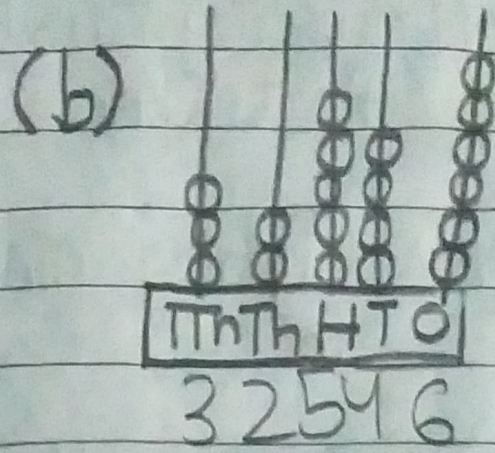 (b)
TTh Th H T O
3 2 5 4 6